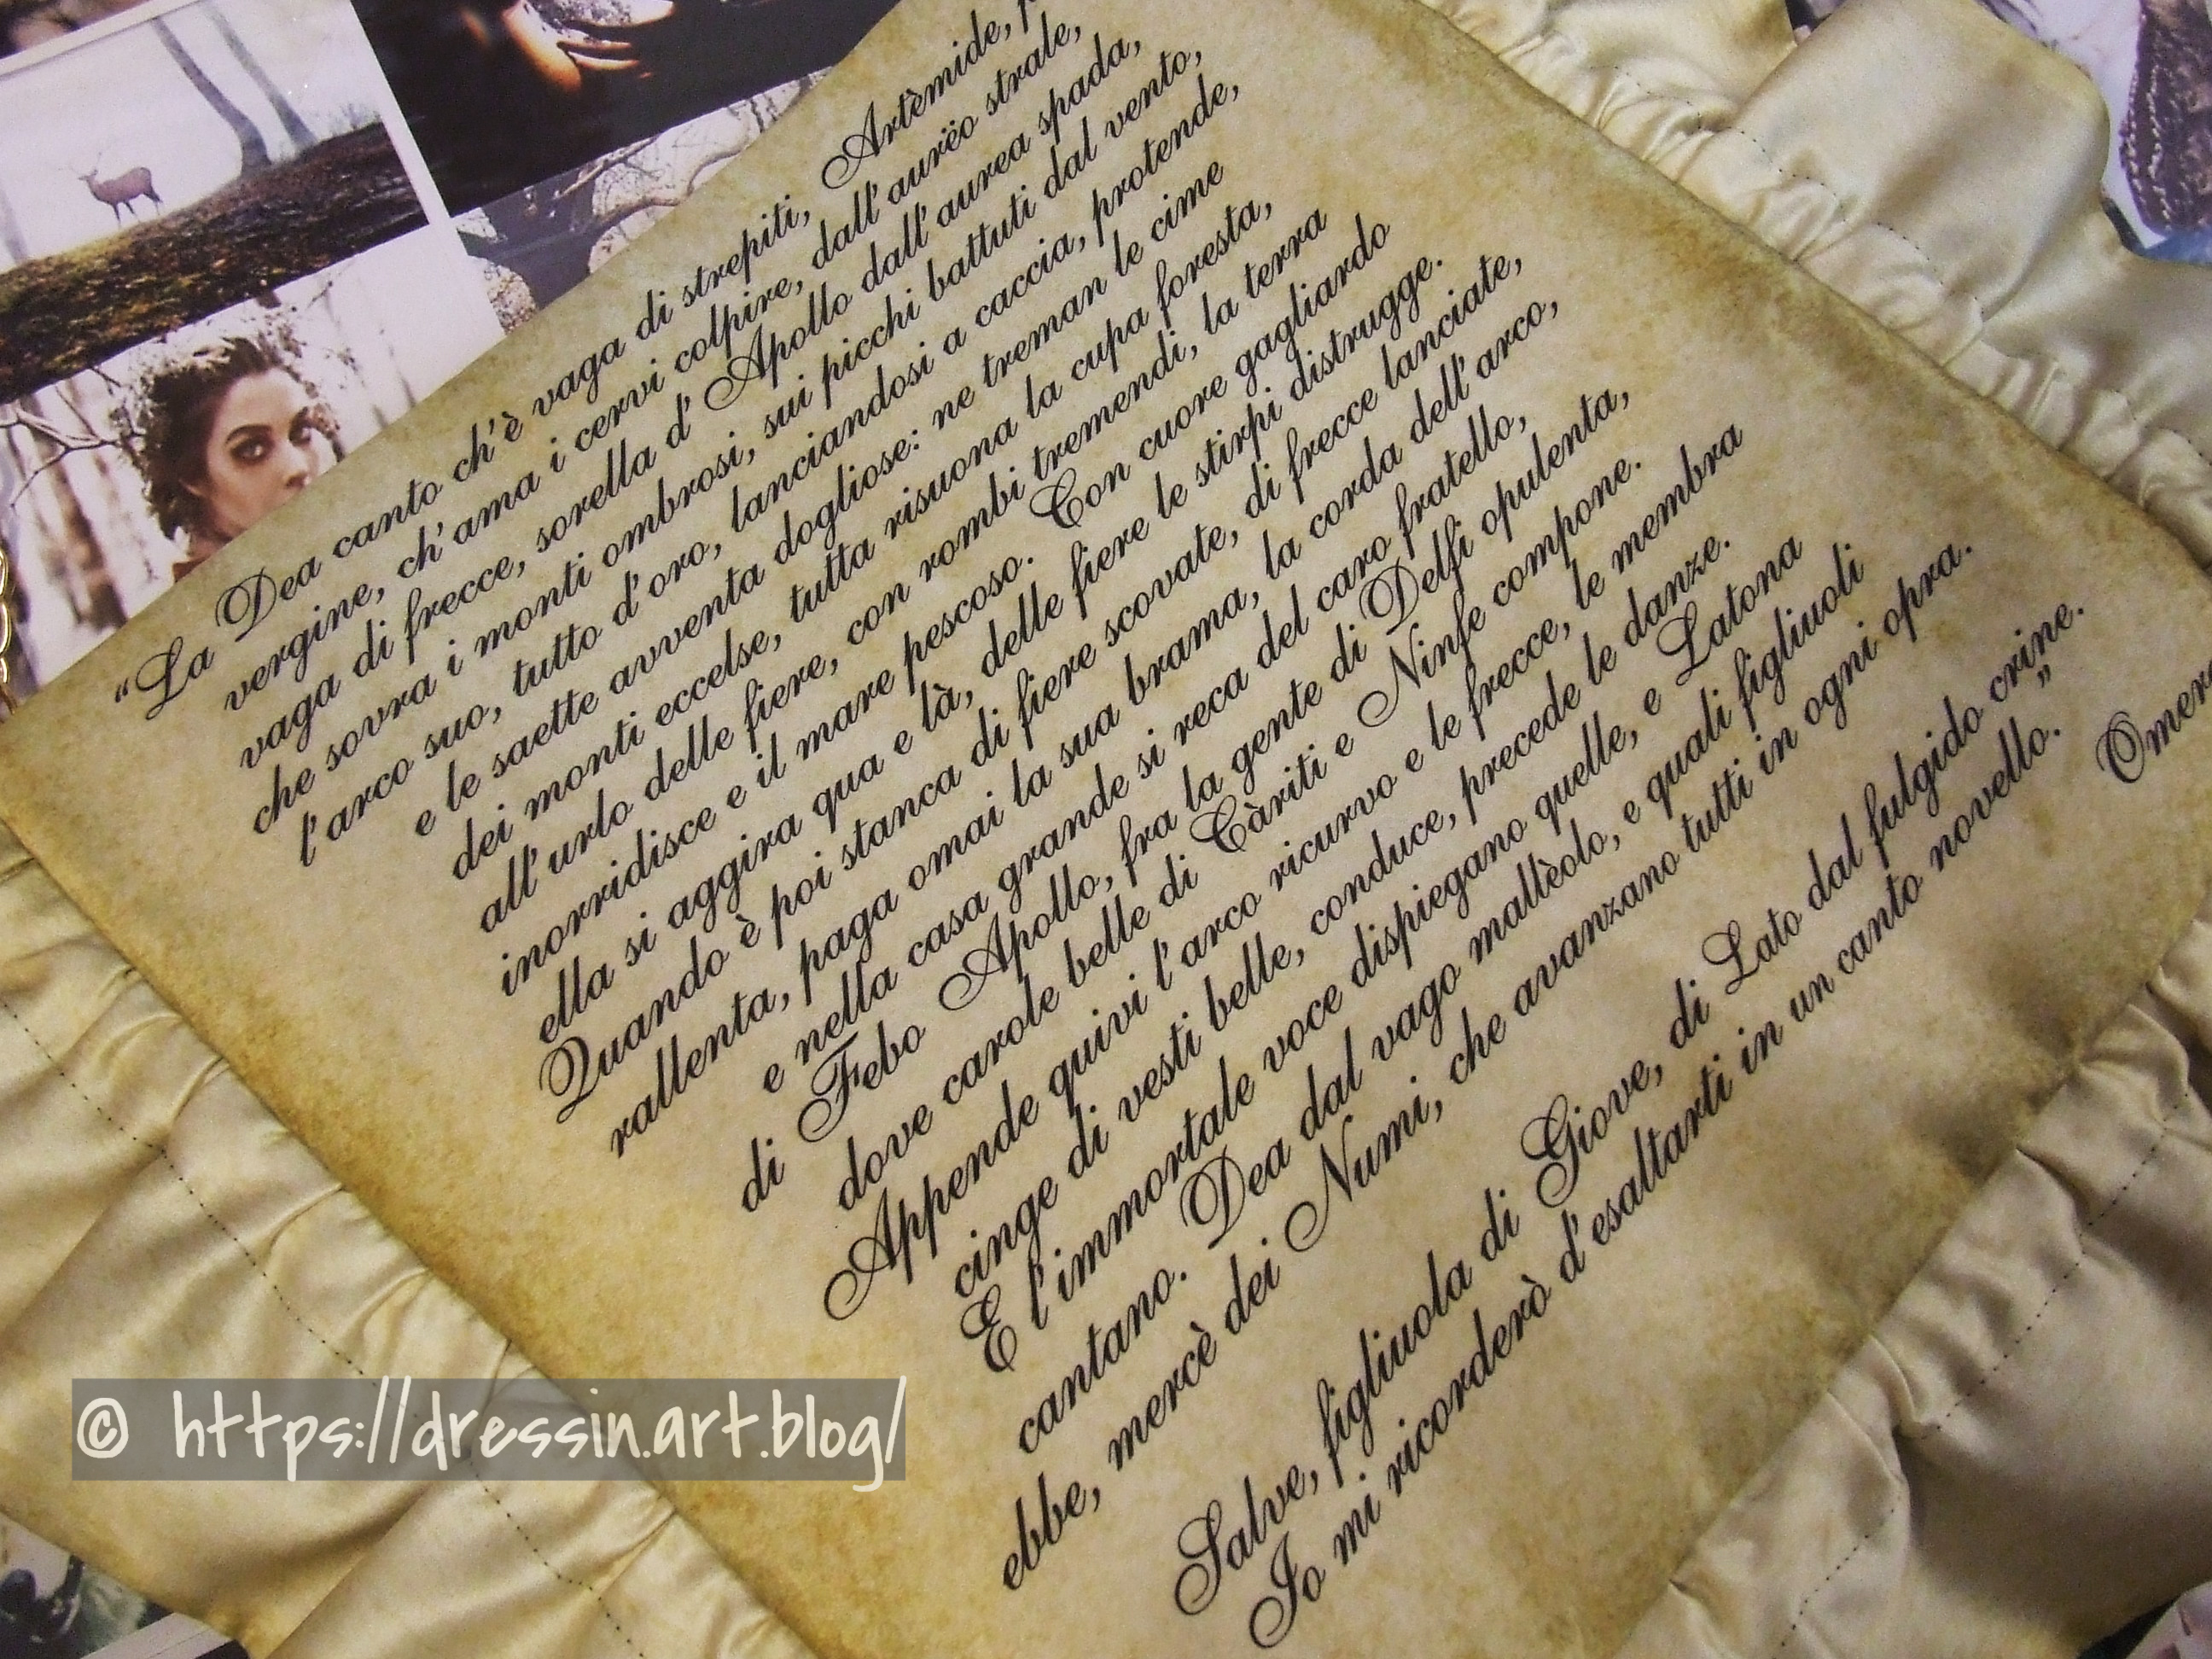 “La Dea canto ch'è vaga di strepiti, Artèmide,
vergine, ch'ama i cervi colpire, dall'aurëo strale,
vaga di frecce, sorella d'Apollo dall'aurea spada,
che sovra i monti ombrosi, sui picchi battuti dal vento,
l'arco suo, tutto d'oro, lanciandosi a caccia, protende,
e le saette avventa dogliose: ne treman le cime
dei monti eccelse, tutta risuona la cupa foresta,
all'urlo delle fiere, con rombi tremendi, la terra
inorridisce e il mare pescoso. Con cuore gagliardo
ella si aggira qua e là, delle fiere le stirpi distrugge.
Quando è poi stanca di fiere scovate, di frecce lanciate,
rallenta, paga omai la sua brama, la corda dell'arco,
e nella casa grande si reca del caro fratello,
di Febo Apollo, fra la gente di Delfi opulenta,
dove carole belle di Càriti e Ninfe compone.
Appende quivi l'arco ricurvo e le frecce, le membra
cinge di vesti belle, conduce, precede le danze.
E l'immortale voce dispiegano quelle, e Latona
cantano. Dea dal vago mallèolo, e quali figliuoli
ebbe, mercè dei Numi, che avanzano tutti in ogni opra.
Salve, figliuola di Giove, di Lato dal fulgido crine.
Io mi ricorderò d'esaltarti in un canto novello.”
© https://dressin.art.blog/